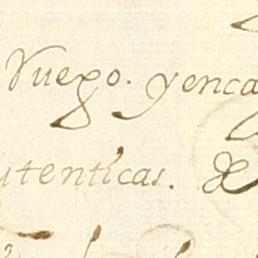 Vuexo. y enca
utenticas. de